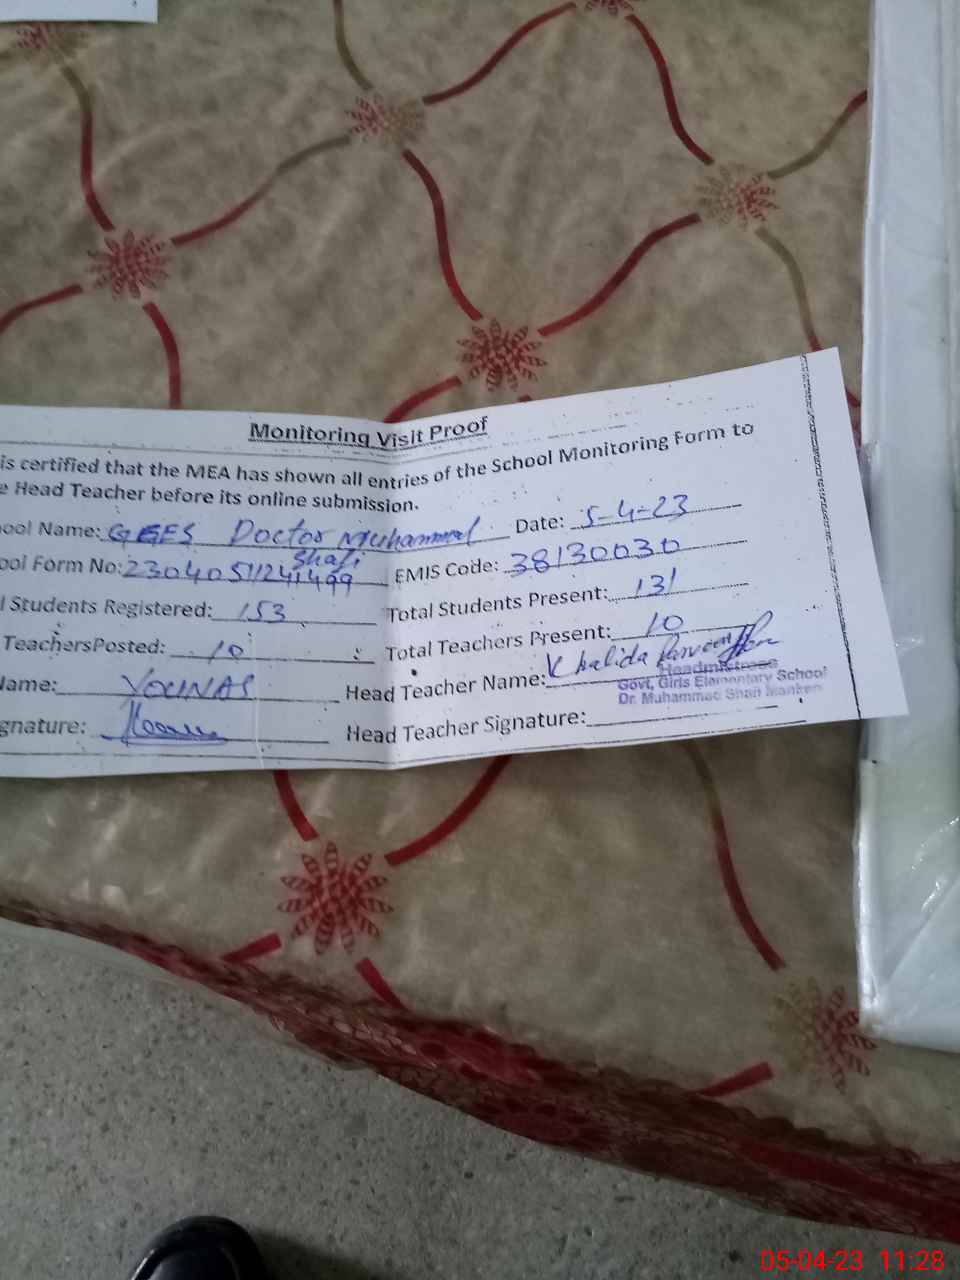 Monitoring Visit Proof
is certified that the MEA has shown all entries of the School Monitoring Form to
e Head Teacher before its online submission.
ool Name: GGES Doctor Muhammad Shafi Date: 5-4-23
ool Form No: 23040511241499 EMIS Code: 38130030
l Students Registered: 153 Total Students Present: 131
TeachersPosted: 10 Total Teachers Present: 10
ame: YOUNAS Head Teacher Name: Khalida Parveen
Headmistress
Govt, Girls Elementary School
Dr. Muhammad Shafi Mankera
gnature: Head Teacher Signature:
05-04-23 11:28